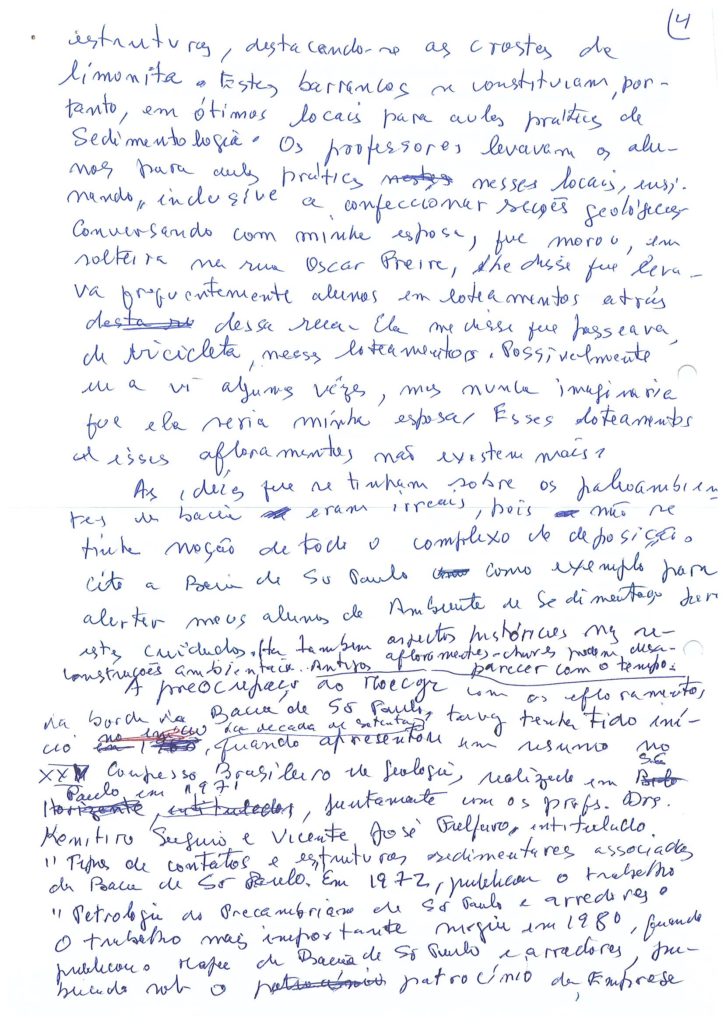 4
estruturas, destacando-se as crostas de
limonita. Estes barrancos se constituiam, por-
tanto, em ótimos locais para aulas práticas de
Sedimentologia. Os professores levavam os alu-
nos para aulas práticas nesses locais, ensi-
nando, inclusive a confeccionar secções geológicas
Conversando com minha esposa, que morou, em
solteira na rua Oscar Freire, lhe disse que leva-
va frequentemente alunos em loteamentos atrás
dessa rua. Ela me disse que passeava,
de bicicleta, nesses loteamentos. Possivelmente
eu a vi algumas vêzes, mas nunca imaginaria
que ela seria minha esposa. Esses loteamentos
e esses afloramentos não existem mais.
As idéias que se tinham sobre os paleoambien
tes da bacia eram irreais, pois não se
tinha noção de todo o complexo de deposição.
Cito a Bacia de São Paulo como exemplo para
alertar meus alunos de Ambiente de Sedimentação para
estes cuidados. Há também aspectos históricos nas re-
construções ambientais. Antigos afloramentos-chaves podem desa-
parecer com o tempo.
A preocupação do com os afloramentos,
na borda da Bacia de São Paulo, talvez tenha tido iní-
cio na decada de setenta, quando apresentou um resumo no
XXV Congresso Brasileiro de Geologia, realizado em São
Paulo em 1971, juntamente com os profs. Drs.
Kenitiro Suguio e Vicente José Fulfaro, intitulado.
"Tipos de contatos e estruturas sedimentares associadas
da Bacia de São Paulo. Em 1972, publicou o trabalho
"Petrologia do Precambriano de São Paulo e arredores".
O trabalho mais importante surgiu em 1980, quando
publicou o Mapa da Bacia de São Paulo e arredores, pu-
blicado sob o patrocínio da Emprese